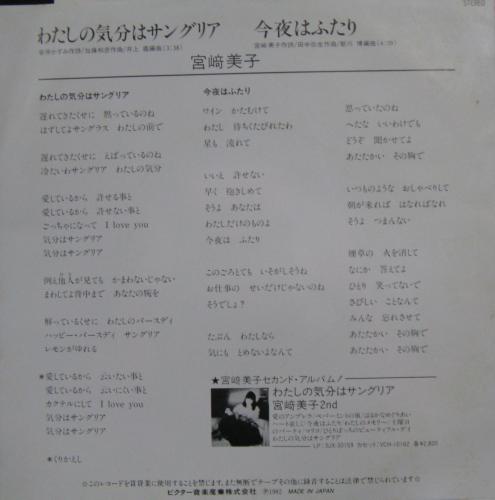 わたしの気分はサングリア　今夜はふたり
STEREO
安井かずみ作詞/加藤和彦作曲/井上 鑑編曲(3:58)
宮﨑美子作詞/田中弥生作曲/
宮﨑美子
わたしの気分はサングリア
遅れてきたくせに　黙っているのね
はずしてよサングラス　わたしの前で
遅れてきたくせに　えばっているのね
冷たいわサングリア　わたしの気分
愛しているから　許せる事と
愛しているから　許せない事と
ごっちゃになって　I love you
気分はサングリア
気分はサングリア
例え他人が見ても　かまわないじゃない
まわしてよ背中まで　あなたの腕を
解っているくせに　わたしのバースディ
ハッピー・バースディ　サングリア
レモンがゆれる
＊愛しているから　云いたい事と
愛しているから　云いにくい事と
カクテルにして　I love you
気分はサングリア
＊くりかえし
今夜はふたり
ワイン　かたむけて
わたし　待ちくたびれたわ
星も　流れて
いいえ　許せない
早く　抱きしめて
そうよ　あなたは
わたしだけのものよ
今夜は　ふたり
このごろとても　いそがしそうね
お仕事の　せいだけじゃないのね
そうでしょ？
たぶん　わたしなら
気にも　とめないよなんて
思っていたのね
へたな　いいわけでも
どうぞ　聞かせてよ
あたたかい　その胸で
いつものような　おしゃべりして
朝が来れば　はなればなれ
そうよ　つまんない
煙草の　火を消して
なにか　答えてよ
ひとり　笑ってないで
さびしい　ことなんて
みんな　忘れさせて
あたたかい　その胸で
あたたかい　その胸で
★宮﨑美子セカンド・アルバム！
わたしの気分はサングリア
宮﨑美子2nd
わたしの気分はサングリア
LP：SJX-30159 カセット：VCH-10162 各￥2,800
☆このレコードを賃貸業に使用することを禁じます。また無断でテープその他に録音することは法律で禁じられています☆
ビクター音楽産業株式会社　Ⓟ1982　MADE IN JAPAN